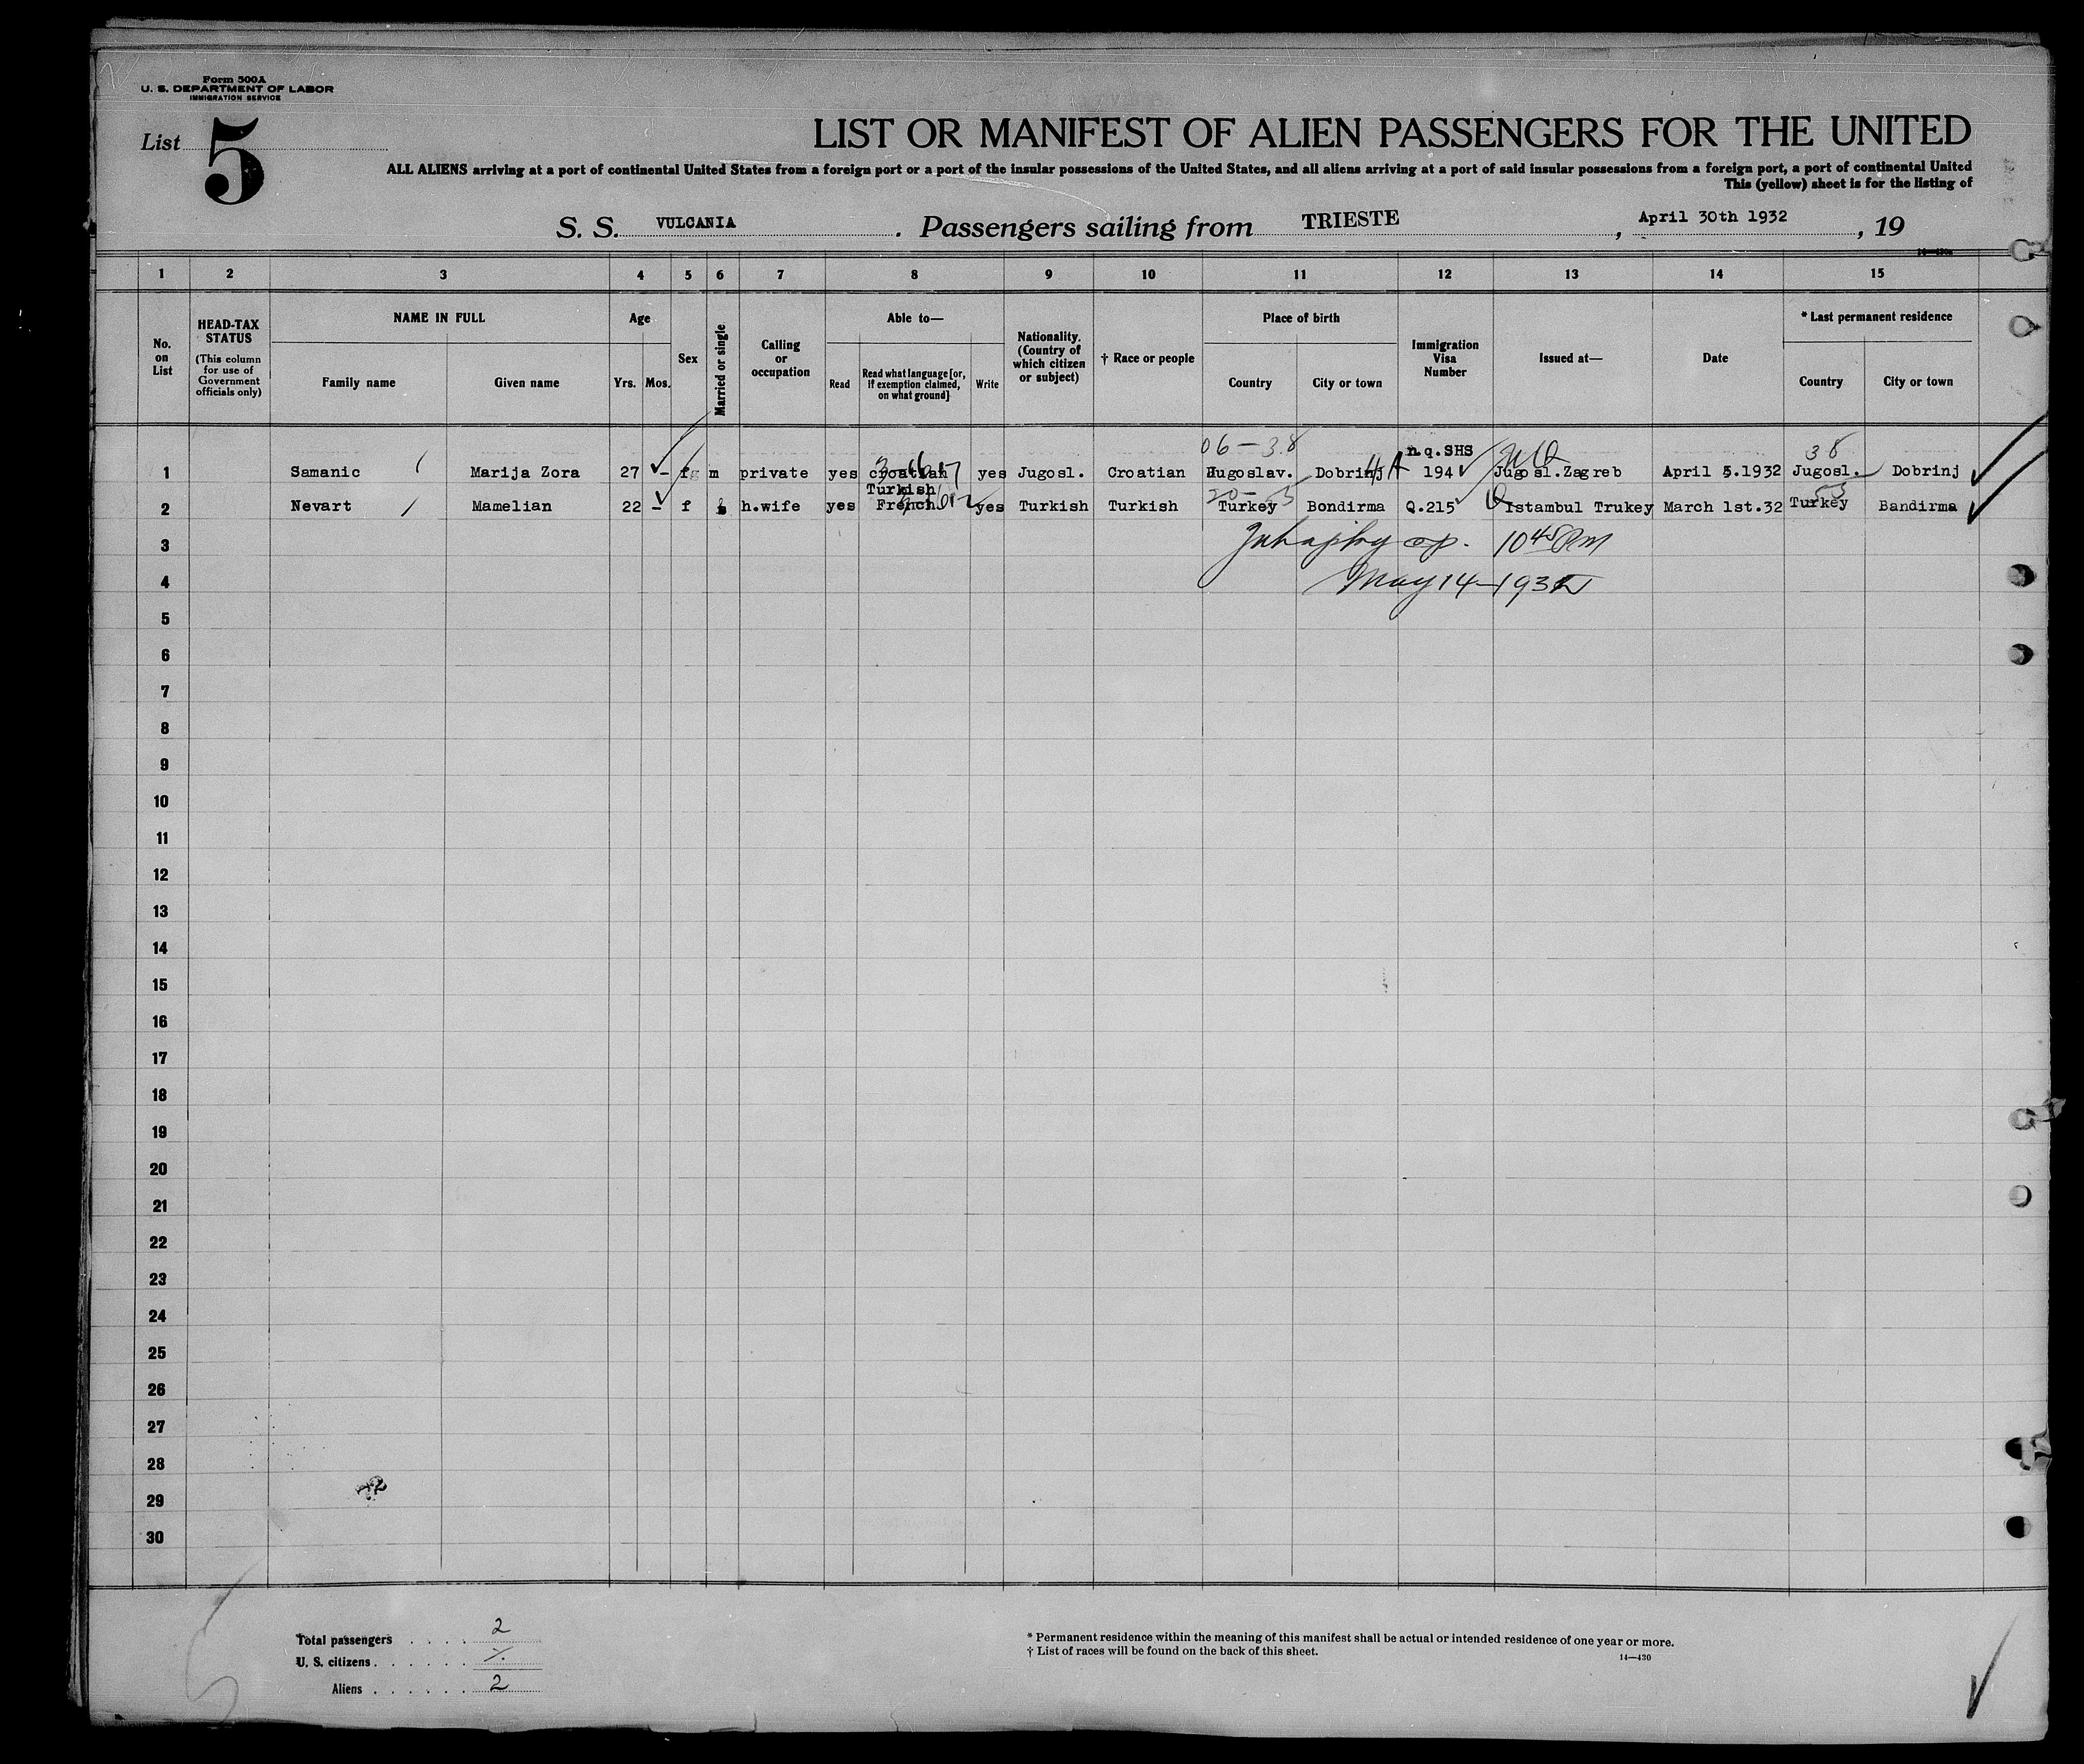 Form 500A
U. S. DEPARTMENT OF LABOR
IMMIGRATION SERVICE
List 5
LIST OR MANIFEST OF ALIEN PASSENGERS FOR THE UNITED
ALL ALIENS arriving at a port of continental United States from a foreign port or a port of the insular possessions of the United States, and all aliens arriving at a port of said insular possessions from a foreign port, a port of continental United
This (yellow) sheet is for the listing of
S. S. VULCANIA . Passengers sailing from TRIESTE , April 30th 1932 , 19
1 2 3 4 5 6 7 8 9 10 11 12 13 14 15
No. on List
HEAD-TAX STATUS
(This column for use of Government officials only)
NAME IN FULL
Family name Given name
Age
Yrs. Mos.
Sex
Married or single
Calling or occupation
Able to—
Read
Read what language [or, if exemption claimed, on what ground]
Write
Nationality. (Country of which citizen or subject)
† Race or people
Place of birth
Country City or town
Immigration Visa Number
Issued at—
Date
* Last permanent residence
Country City or town
06-38 n.q.SHS 38
1 Samanic Marija Zora 27 - f m private yes croatian yes Jugosl. Croatian Jugoslav. Dobrinj 194 Jugosl.Zagreb April 5.1932 Jugosl. Dobrinj
Turkish
2 Nevart Mamelian 22 - f h.wife yes French yes Turkish Turkish Turkey Bondirma Q.215 Istambul Trukey March 1st.32 Turkey Bandirma
3 10 45 PM
4 May 14-1932
5
6
7
8
9
10
11
12
13
14
15
16
17
18
19
20
21
22
23
24
25
26
27
28
29
30
Total passengers . . . . 2
U. S. citizens . . . . . .
Aliens . . . . . . 2
* Permanent residence within the meaning of this manifest shall be actual or intended residence of one year or more.
† List of races will be found on the back of this sheet.
14—430